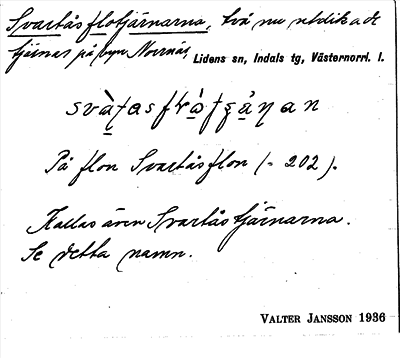 Svartåsflotjärnarna, två nu utdikade
tjärnar på byn Norrnäs, Lidens sn, Indals tg, Västernorrl. l.
På flon Svartåsflon (= 202).
Kallas även Svartåstjärnarna.
Se detta namn.
VALTER JANSSON 1936